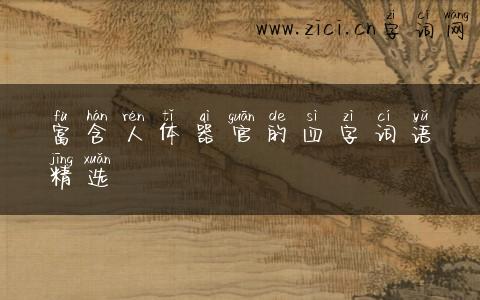 www.zici.cn字词网
zì cí wǎng
fù hán rén tǐ qì guān de sì zì cí yǔ
富含人体器官的四字词语
jīng xuǎn
精选